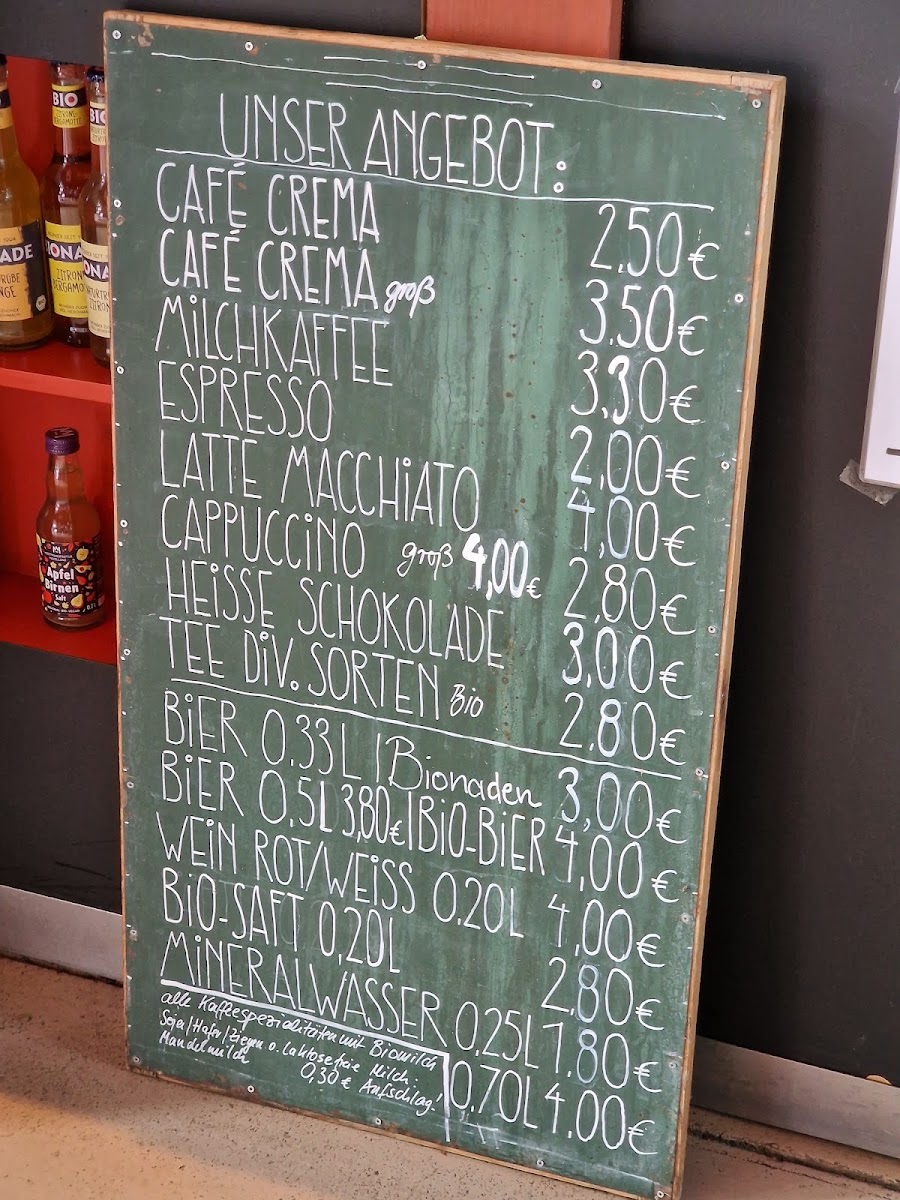 UNSER ANGEBOT:
CAFÉ CREMA 2.50 €
CAFÉ CREMA groß 3.50 €
MiLCHKAFFEE 3.30 €
ESPRESSO 2,00 €
LATTE MACCHiATO 4,00 €
CAPPUCCiNO groß 4,00 € 2,80 €
HEiSSE SCHOKOLADE 3,00 €
TEE DiV. SORTEN Bio 2.80 €
BiER 0.33 L | Bionaden 3,00 €
BiER 0,5L 3,80 € | BiO-BiER 4,00 €
WEiN ROT/WEiSS 0.20L 4,00 €
BiO-SAFT 0,20L 2,80 €
MiNERALWASSER 0,25L 1.80 €
0,70L 4.00 €
alle Kaffeespezialitäten mit Biomilch
Soja/Hafer/Ziegen o. Laktosefreie Milch.
Mandelmilch 0,30 € Aufschlag!
BIO
ZITRONE
BERGAMOTTE
BIO
ADE
RÜBE
NGE
IONA
ZITRON
BERGAMO
ONA
ZITRON
Apfel
Birnen
Saft